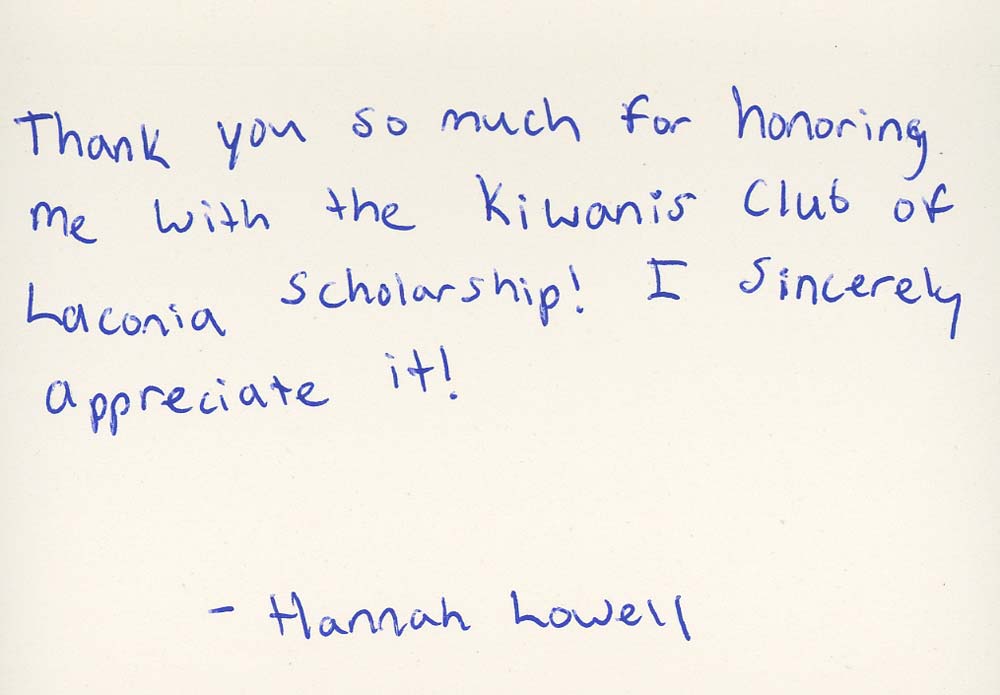 Thank you so much for honoring
me with the Kiwanis Club of
Laconia Scholarship! I Sincerely
appreciate it!
- Hannah Lowell